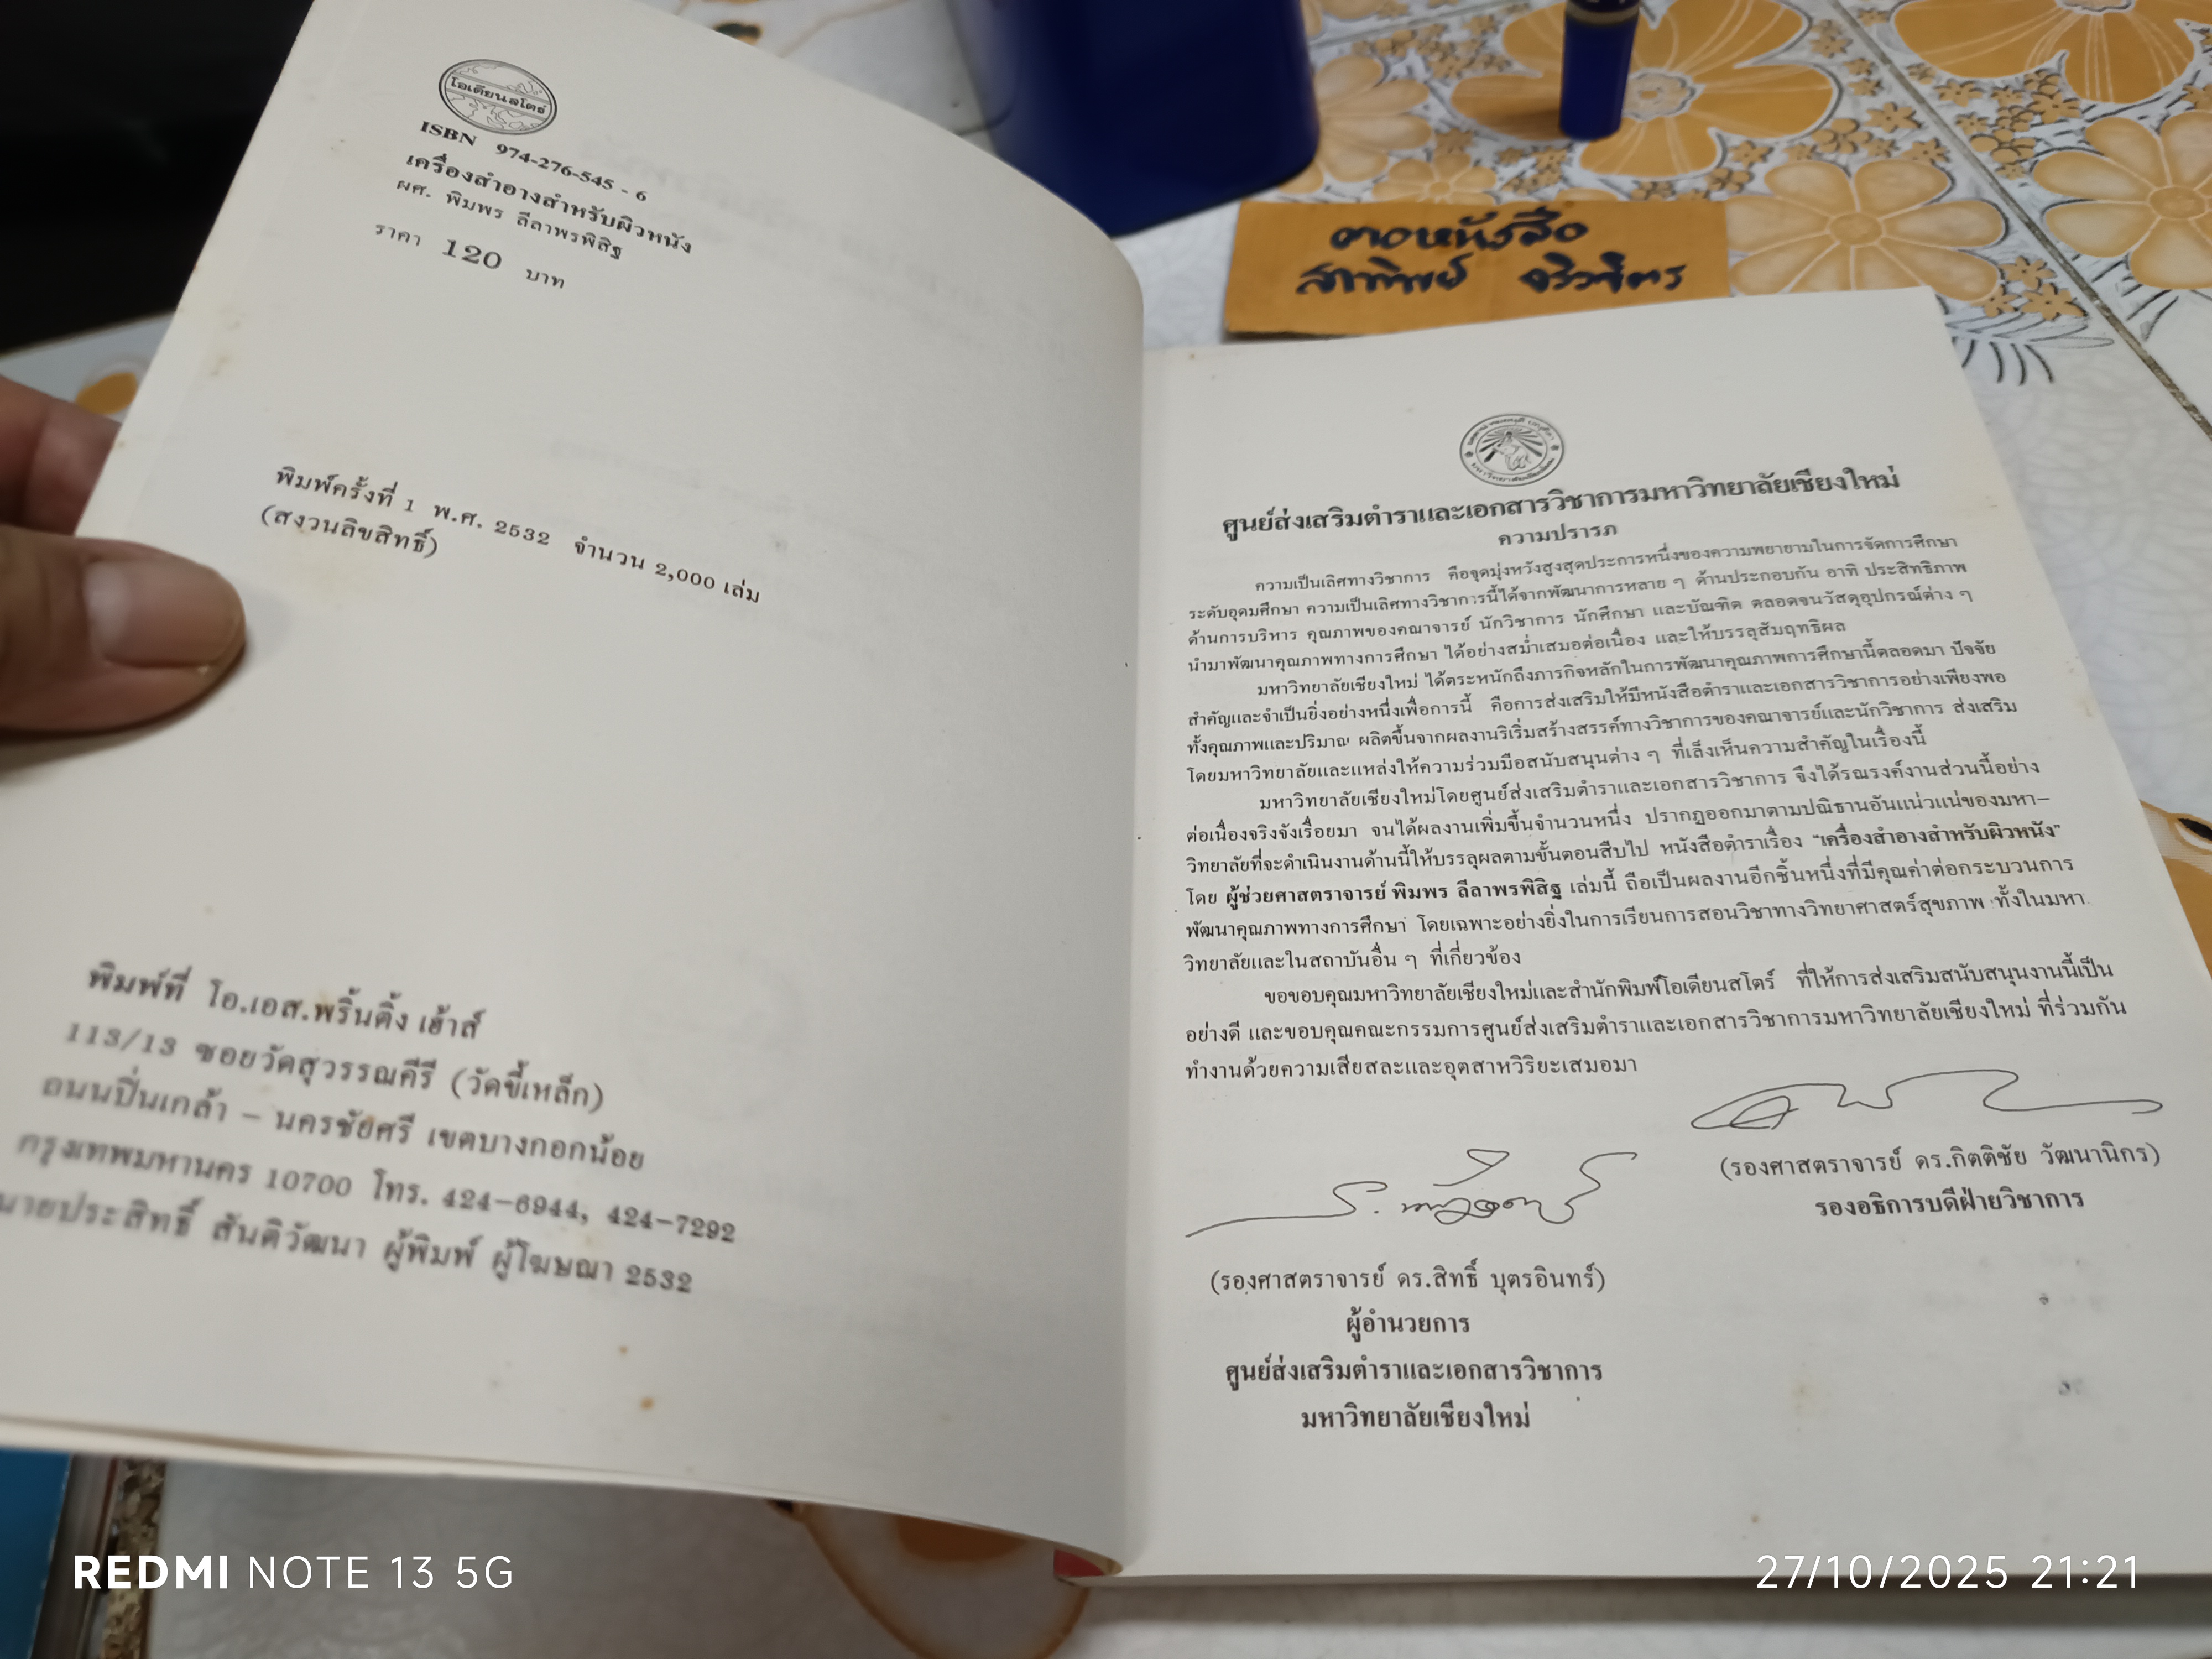 โอเดียนสโตร์
ISBN 974-276-545 - 6
เครื่องสำอางสำหรับผิวหนัง
ผศ. พิมพร ลีลาพรพิสิฐ
ราคา 120 บาท
พิมพ์ครั้งที่ 1 พ.ศ. 2532 จำนวน 2,000 เล่ม
(สงวนลิขสิทธิ์)
พิมพ์ที่ โอ.เอส.พริ้นติ้ง เฮ้าส์
113/13 ซอยวัดสุวรรณคีรี (วัดขี้เหล็ก)
ถนนปิ่นเกล้า – นครชัยศรี เขตบางกอกน้อย
กรุงเทพมหานคร 10700 โทร. 424-6944, 424-7292
นายประสิทธิ์ สันติวัฒนา ผู้พิมพ์ ผู้โฆษณา 2532
หนังสือ
ศูนย์ส่งเสริมตำราและเอกสารวิชาการมหาวิทยาลัยเชียงใหม่
ความปรารภ
ความเป็นเลิศทางวิชาการ คือจุดมุ่งหวังสูงสุดประการหนึ่งของความพยายามในการจัดการศึกษา
ระดับอุดมศึกษา ความเป็นเลิศทางวิชาการนี้ได้จากพัฒนาการหลาย ๆ ด้านประกอบกัน อาทิ ประสิทธิภาพ
ด้านการบริหาร คุณภาพของคณาจารย์ นักวิชาการ นักศึกษา และบัณฑิต ตลอดจนวัสดุอุปกรณ์ต่าง ๆ
นำมาพัฒนาคุณภาพทางการศึกษา ได้อย่างสม่ำเสมอต่อเนื่อง และให้บรรลุสัมฤทธิผล
มหาวิทยาลัยเชียงใหม่ ได้ตระหนักถึงภารกิจหลักในการพัฒนาคุณภาพการศึกษานี้ตลอดมา ปัจจัย
สำคัญและจำเป็นยิ่งอย่างหนึ่งเพื่อการนี้ คือการส่งเสริมให้มีหนังสือตำราและเอกสารวิชาการอย่างเพียงพอ
ทั้งคุณภาพและปริมาณ ผลิตขึ้นจากผลงานริเริ่มสร้างสรรค์ทางวิชาการของคณาจารย์และนักวิชาการ ส่งเสริม
โดยมหาวิทยาลัยและแหล่งให้ความร่วมมือสนับสนุนต่าง ๆ ที่เล็งเห็นความสำคัญในเรื่องนี้
มหาวิทยาลัยเชียงใหม่โดยศูนย์ส่งเสริมตำราและเอกสารวิชาการ จึงได้รณรงค์งานส่วนนี้อย่าง
ต่อเนื่องจริงจังเรื่อยมา จนได้ผลงานเพิ่มขึ้นจำนวนหนึ่ง ปรากฏออกมาตามปณิธานอันแน่วแน่ของมหา–
วิทยาลัยที่จะดำเนินงานด้านนี้ให้บรรลุผลตามขั้นตอนสืบไป หนังสือตำราเรื่อง "เครื่องสำอางสำหรับผิวหนัง"
โดย ผู้ช่วยศาสตราจารย์ พิมพร ลีลาพรพิสิฐ เล่มนี้ ถือเป็นผลงานอีกชิ้นหนึ่งที่มีคุณค่าต่อกระบวนการ
พัฒนาคุณภาพทางการศึกษา โดยเฉพาะอย่างยิ่งในการเรียนการสอนวิชาทางวิทยาศาสตร์สุขภาพ ทั้งในมหา
วิทยาลัยและในสถาบันอื่น ๆ ที่เกี่ยวข้อง
ขอขอบคุณมหาวิทยาลัยเชียงใหม่และสำนักพิมพ์โอเดียนสโตร์ ที่ให้การส่งเสริมสนับสนุนงานนี้เป็น
อย่างดี และขอบคุณคณะกรรมการศูนย์ส่งเสริมตำราและเอกสารวิชาการมหาวิทยาลัยเชียงใหม่ ที่ร่วมกัน
ทำงานด้วยความเสียสละและอุตสาหวิริยะเสมอมา
(รองศาสตราจารย์ ดร.กิตติชัย วัฒนานิกร)
รองอธิการบดีฝ่ายวิชาการ
(รองศาสตราจารย์ ดร.สิทธิ์ บุตรอินทร์)
ผู้อำนวยการ
ศูนย์ส่งเสริมตำราและเอกสารวิชาการ
มหาวิทยาลัยเชียงใหม่
REDMI NOTE 13 5G
27/10/2025 21:21